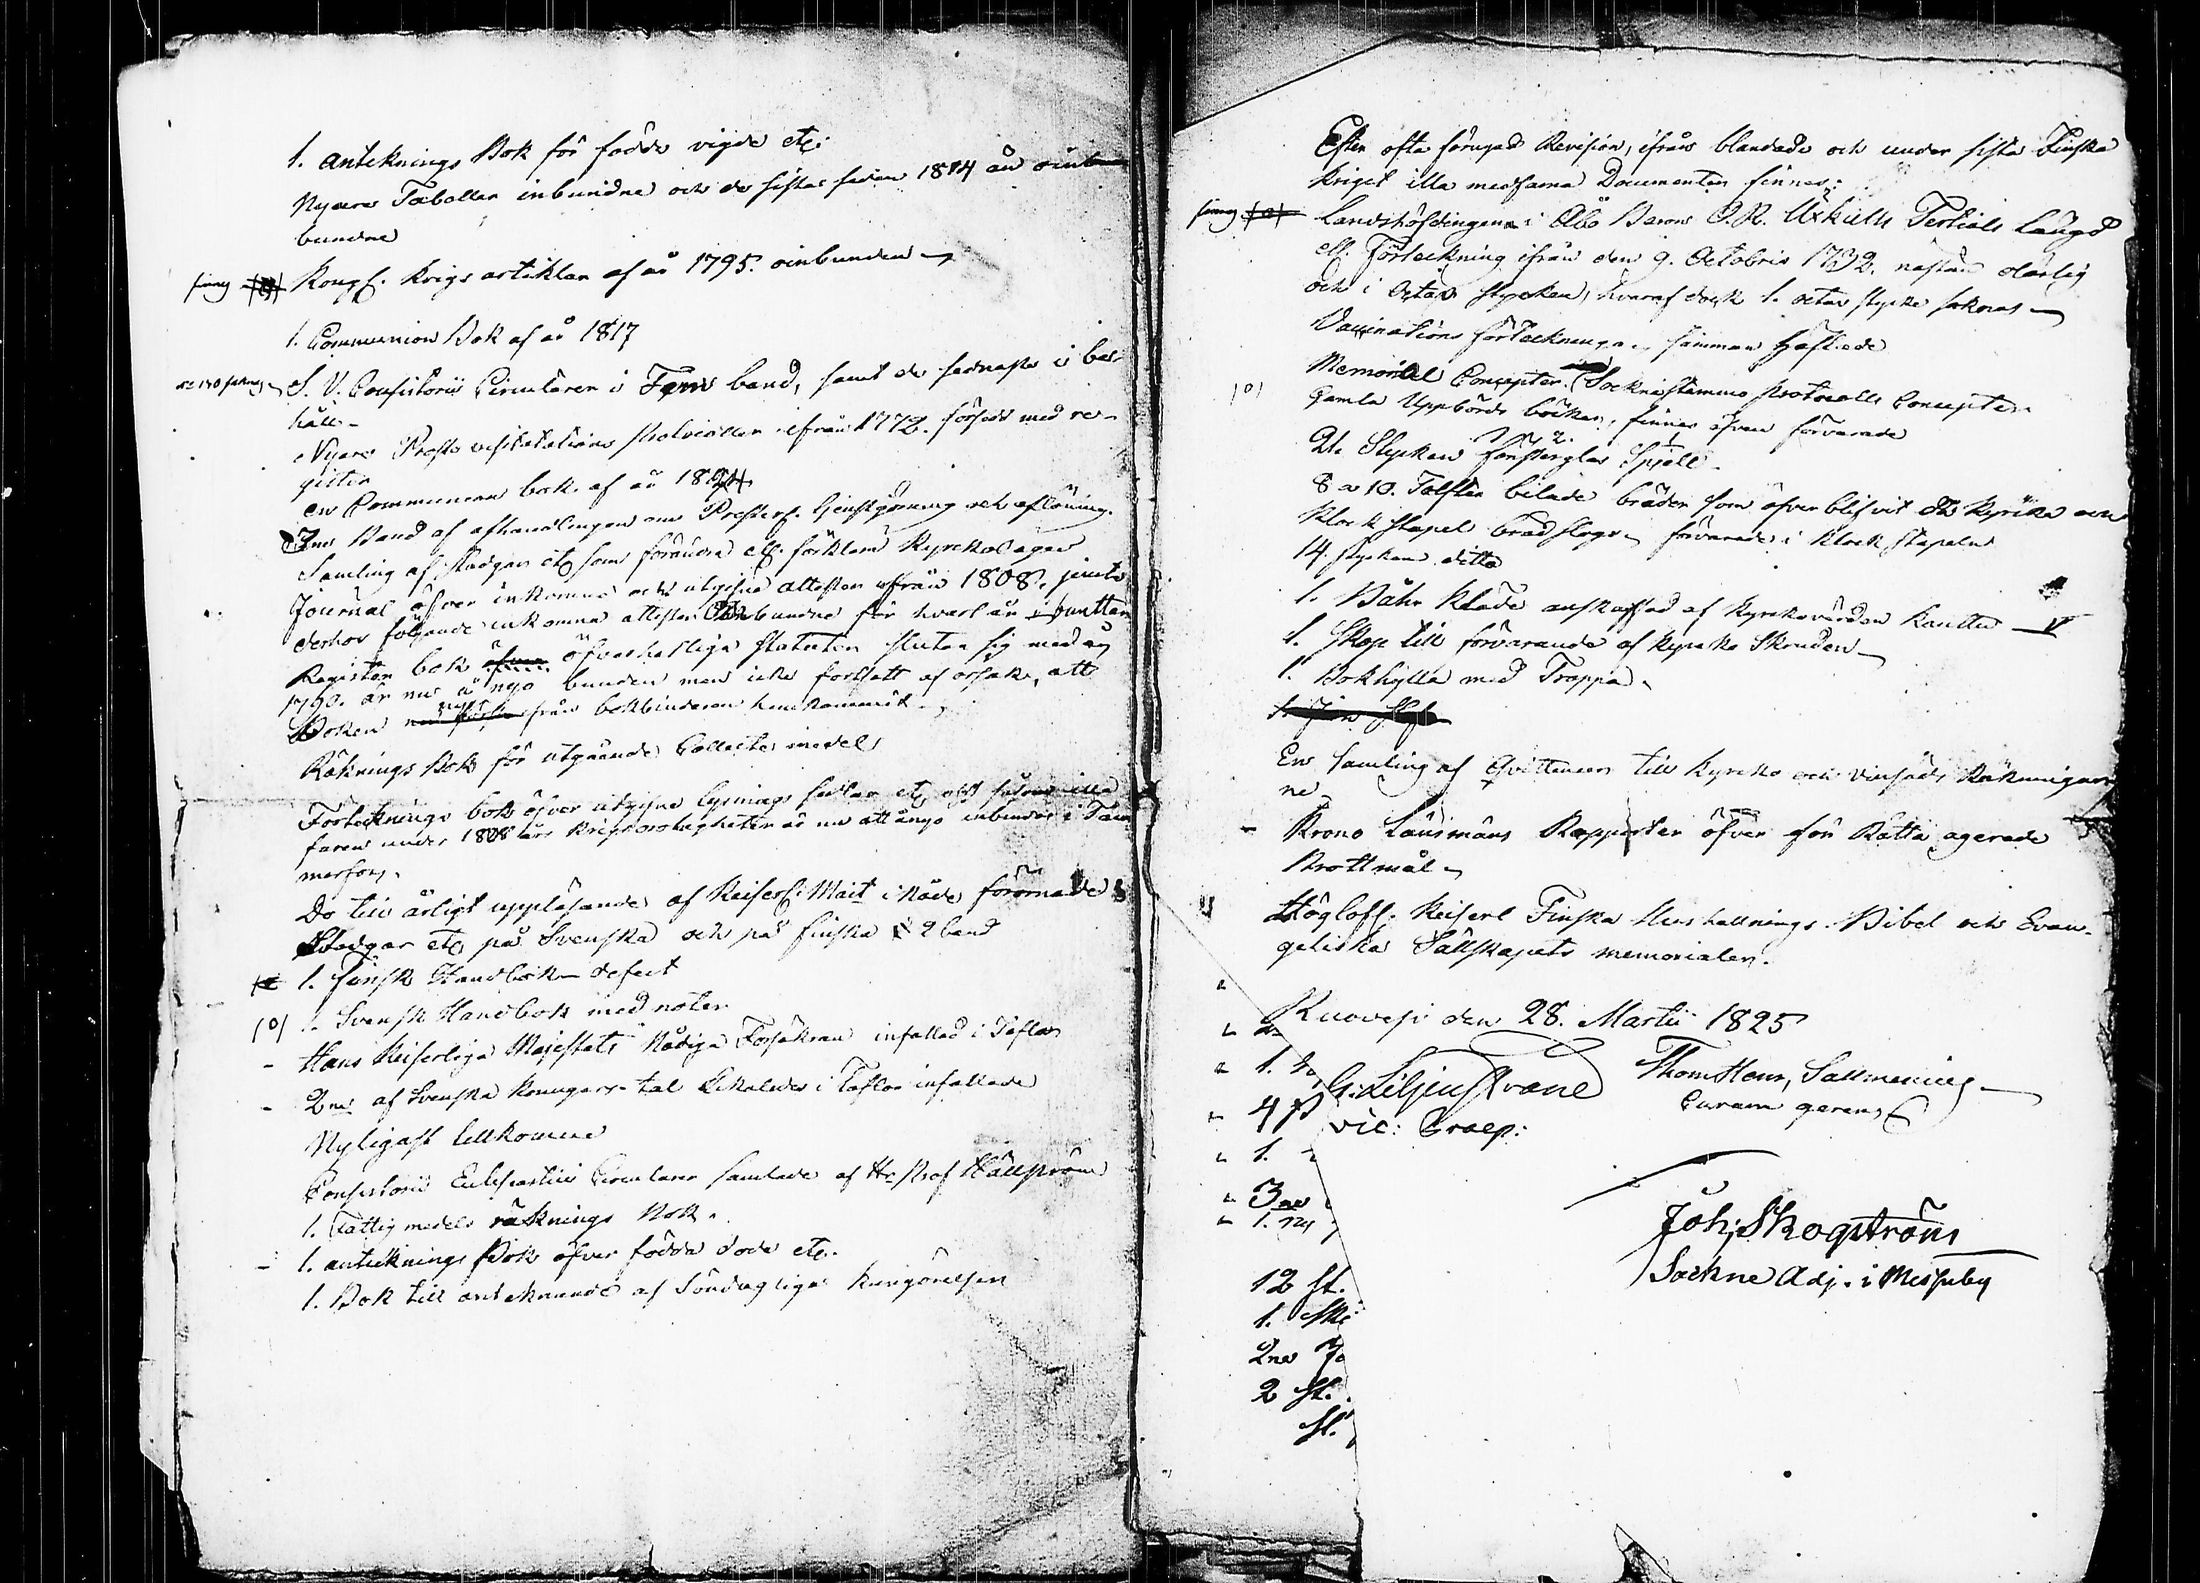 1. Anteknings Bok för födde vigde etc:
Nyare Tabeller inbundne och de sista sedan 1814 än oinbundne
finnes Kongl. Krigs artiklar af år 1795. oinbunden
1. Communion Bok af år 1817
S. V. Consistorii Circulairer i Fem band, samt de sednaste i behåll
Nyare Prosts visitations Protocoller ifrån 1772. försedt med register
en Communion bok af år 1824
Band af afhandlingar om Prestersk. tjenstgöring och aflöning.
Samling af stadgar etc som förändra ell. förklara Kyrkolagen
Journal öfver inkomne och utgifne attester ifrån 1808. jemte
derhos följande inkomne attester bundne för hvart år
Register bok öfver öfverhetliga Statuter slutar sig med år
1790. är nu å nyo bunden men icke fortsatt af orsak, att
Boken från bokbindaren hemkommit.
Räknings Bok för utgående Collecter medel
Förtecknings bok öfver utgifne lysnings sedlar etc
faren under 1808 års Krigs oroligheter är nu att ånyo inbindas i Tammerfors.
Do till årligt uppläsande af Keiserl: Mait i Nåde förornade
Stadgar etc på Svenska och på finska 2 band
1. finsk Handbok defect
(0) 1. Svensk Handbok med noter
- Hans Keiserliga Majestäts Nådiga Försäkran infattad i Taflor
- 2ne af Svenska Konungars tal Likaledes i Taflor infattade
Nyligast tillkomne
Consistorii Ecclesiastici Circulairer samlade af Hr Prof Hällström
1. Fattig medels räknings Bok.
- 1. antecknings Bok öfver födda döda etc.
1. Bok till antecknande af Söndagliga kungörelser
Efter ofta förnyad Revision, ifrån blandade och under sista Finska
kriget illa medfarna Documenter finnes:
finnes Landshöfdingens i Åbo Baron O.R. Üxkulls Tertials Längd
ell. Förteckning ifrån den 9. Octobris 1792. nästan olärlig
och i Octav stycken, hvaraf dock 1. octav stycke saknas
Vaccinations förteckningar, samman häftade
(0) Memorial Concepter. Sockne stämmo protocolls Concepter
Gamla Uppbörds böcker, finnes äfven förvarade
21. Stycken fönsterglas Spjell.
8 a 10. Tolfter bilade bräder som öfverblifvit då Kyrko och
Klock stapel bräd slogs, förvarade i Klock stapeln
14. stycken ditto
1. Bår Kläde anskaffad af Kyrkovärden Kanttu
1. Skåp till förvarande af Kyrko Skruden
1. Bokhylla med Trappa.
En samling af Qvittencer till Kyrko och vinsäds Räkningarne
- Krono Länsmäns Rapporter öfver för Rätta agerade
Brottmål
Höglofl. Keiserl Finska Hushållnings- Bibel och Evangeliska
Sällskapets memorialer.
Ruovesi den 28. Martii 1825
G: Liljenstrand
vic: Praep:
Thom Henr, Sallmenius
Curam gerens
Joh: Skogström
Sockne Adj. i Messuby
1.
4 st
1.
3ne
1.
12 st.
1. Ski
2ne
2 st.
st.